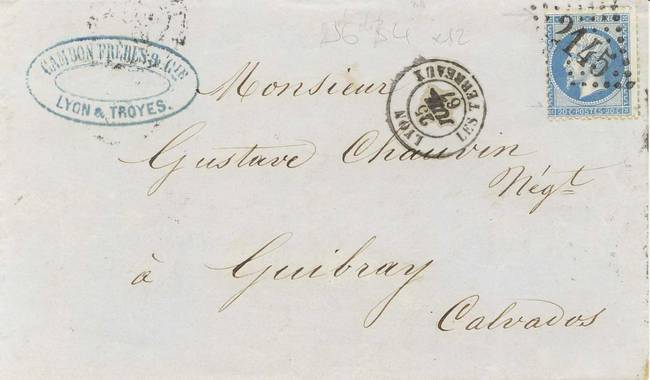 CAMBON FRÈRES & CIE
LYON & TROYES.
2145
20 C POSTES 20 C
LYON
25
67
LES TERREAUX
Monsieur
Gustave Chauvin
Négt
à Guibray
Calvados